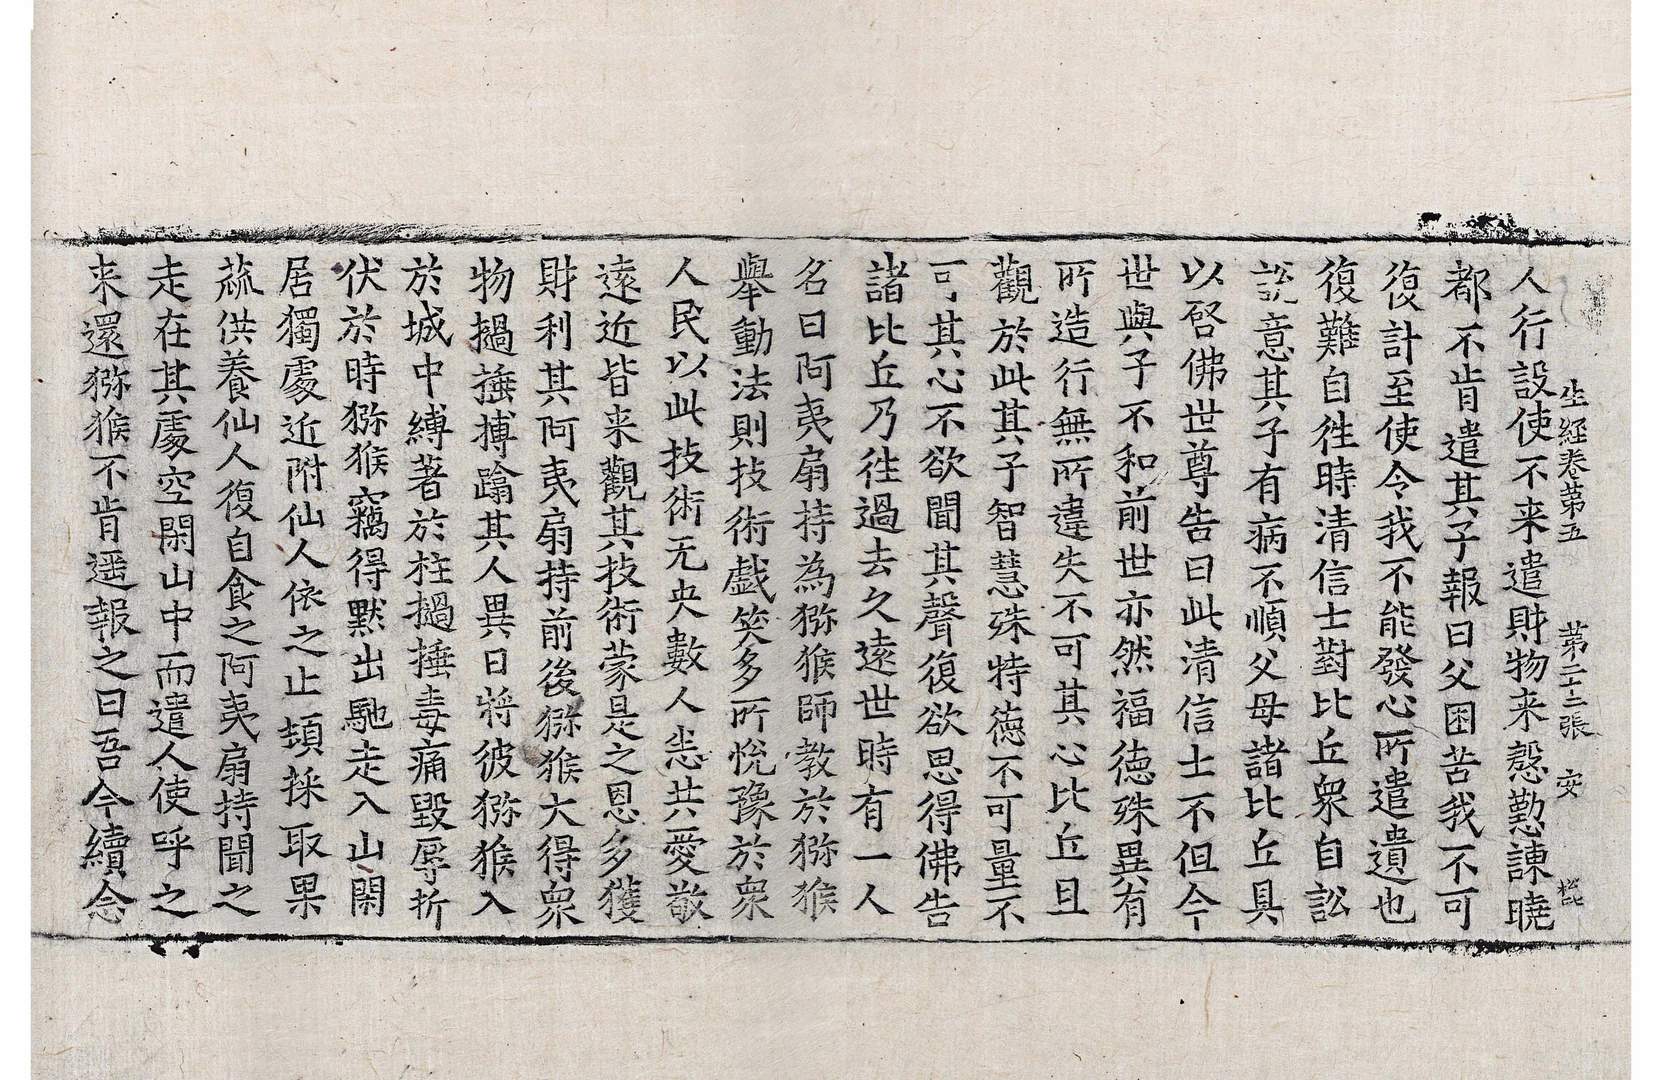 生經卷第五　第二十三張　安
人行設使不来遣財物来慇懃諫曉
都不肯遣其子報曰父困苦我不可
復計至使令我不能發心所遣遺也
復難自往時清信士對比丘眾自訟
訟意其子有病不順父母諸比丘具
以啓佛世尊告曰此清信士不但今
世與子不和前世亦然福德殊異有
所造行無所違失不可其心比丘且
觀於此其子智慧殊特德不可量不
可其心不欲聞其聲復欲思得佛告
諸比丘乃往過去久遠世時有一人
名曰阿夷扇持為獼猴師教於獼猴
舉動法則技術戲笑多所悅豫於眾
人民以此技術无央數人恙共愛敬
遠近皆来觀其技術蒙是之恩多獲
財利其阿夷扇持前後獼猴大得眾
物撾捶搏蹹其人異日將彼獼猴入
於城中縛著於柱撾捶毒痛毀辱折
伏於時獼猴竊得默出馳走入山閑
居獨處近附仙人依之止頓採取果
蓏供養仙人復自食之阿夷扇持聞之
走在其處空閑山中而遣人使呼之
来還獼猴不肯遥報之曰吾今續念